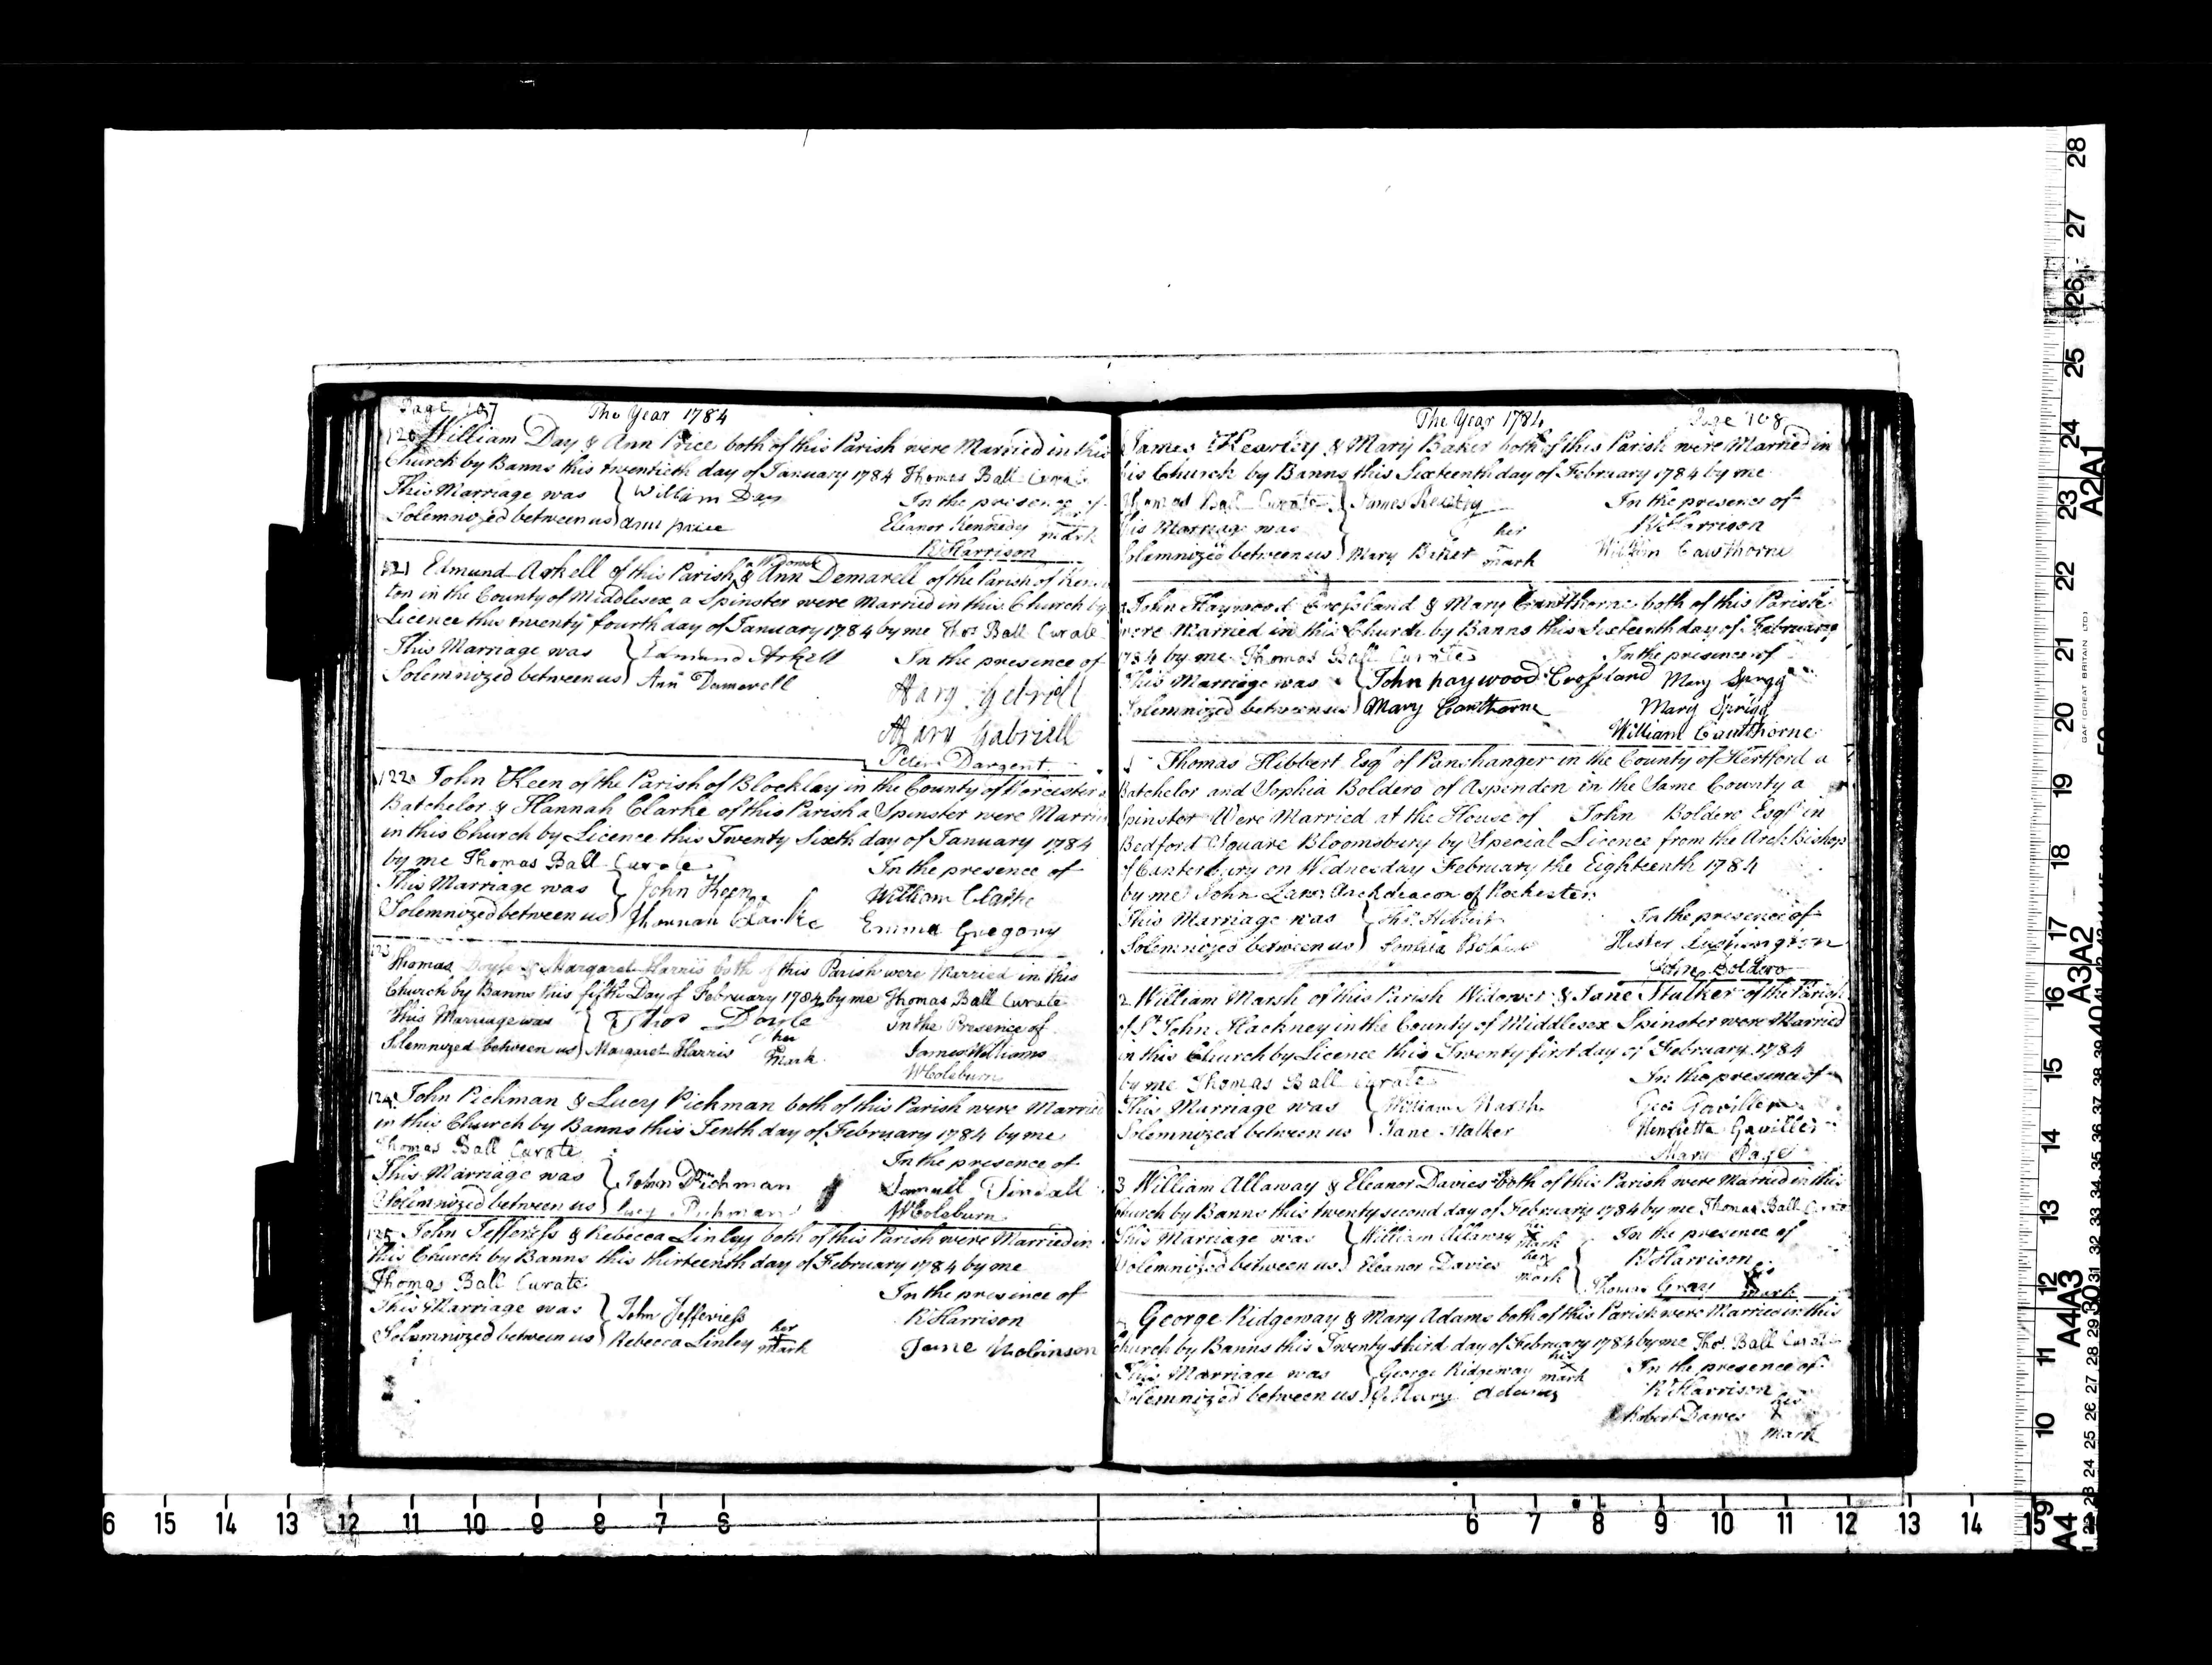 Page 107 The Year 1784
120 William Day & Ann Price both of this Parish were Married in this
Church by Banns this twentieth day of January 1784 Thomas Ball Curate
This Marriage was William Day In the presence of
Solemnized between us Ann price Eleanor Kennedy her mark
R Harrison
121 Edmund Arkell of this Parish a Widower & Ann Demarell of the Parish of
ton in the County of Middlesex a Spinster were Married in this Church by
Licence this twenty fourth day of January 1784 by me Thos Ball Curate
This Marriage was Edmund Arkell In the presence of
Solemnized between us Ann Damerell Mary Gabriell
Mary Gabriell
Peter Dargent
122 John Keen of the Parish of Blockley in the County of Worcester a
Batchelor & Hannah Clarke of this Parish a Spinster were Married
in this Church by Licence this Twenty Sixth day of January 1784
by me Thomas Ball Curate In the presence of
This Marriage was John Keen William Clarke
Solemnized between us Hannah Clarke Emma Gregory
123 Thomas Doyle & Margaret Harris both of this Parish were Married in this
Church by Banns this fifth Day of February 1784 by me Thomas Ball Curate
This Marriage was Thos Doyle In the Presence of
Solemnized between us Margaret Harris her mark James Williams
W Coleburn
124 John Pichman & Lucy Pichman both of this Parish were Married
in this Church by Banns this Tenth day of February 1784 by me
Thomas Ball Curate In the presence of
This Marriage was John Pichman Samuel Tindall
Solemnized between us Lucy Pichman W Coleburn
125 John Jefferess & Rebecca Linley both of this Parish were Married in
this Church by Banns this thirteenth day of February 1784 by me
Thomas Ball Curate In the presence of
This Marriage was John Jefferiess R Harrison
Solemnized between us Rebecca Linley her mark Jane Robinson
The Year 1784 Page 108
James & Mary Baker both of this Parish were Married in
his Church by Banns this Sixteenth day of February 1784 by me
Thomas Ball Curate James In the presence of
his Marriage was R Harrison
Solemnized between us Mary Baker her mark William Cawthorne
John Haywood Crossland & Mary Cawthorne both of this Parish
were Married in this Church by Banns this Sixteenth day of February
1784 by me Thomas Ball Curate In the presence of
This Marriage was John haywood Crossland Mary Sprigg
Solemnized between us Mary Cawthorne Mary Sprigg
William Cawthorne
Thomas Hibbert Esqr of Panshanger in the County of Hertford a
Batchelor and Sophia Boldero of Aspenden in the Same County a
Spinster Were Married at the House of John Boldero Esqr in
Bedford Square Bloomsbury by Special Licence from the Arch Bishop
of Canterbury on Wednesday February the Eighteenth 1784
by me John Law Archdeacon of Rochester
This Marriage was Thos Hibbert In the presence of
Solemnized between us Sophia Boldero Hester Lushington
John Boldero
2 William Marsh of this Parish Widower & Jane Stalker of the Parish
of St John Hackney in the County of Middlesex Spinster were Married
in this Church by Licence this Twenty first day of February 1784
by me Thomas Ball Curate In the presence of
This Marriage was William Marsh Geo Gaviller
Solemnized between us Jane Stalker Henrietta Gaviller
Mary Page
3 William Allaway & Eleanor Davies both of this Parish were Married in this
Church by Banns this twenty second day of February 1784 by me Thomas Ball Curate
This Marriage was William Allaway his mark In the presence of
Solemnized between us Eleanor Davies her mark R Harrison
Thomas Gray his X mark
George Ridgeway & Mary Adams both of this Parish were Married in this
Church by Banns this Twenty third day of February 1784 by me Thos Ball Curate
This Marriage was George Ridgeway his mark In the presence of
Solemnized between us Mary Adams R Harrison
Robert Dawes his X mark
28
27
26
25
24
23
22
21
20
19
18
17
16
15
14
13
12
11
10
A2A1
A3A2
A4A3
A4
GAF (GREAT BRITAIN LTD)
6 15 14 13 12 11 10 9 8 7 6 6 7 8 9 10 11 12 13 14 15